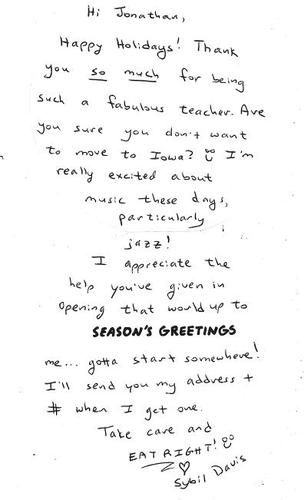 Hi Jonathan,
Happy Holidays! Thank
you so much for being
such a fabulous teacher. Are
you sure you don't want
to move to Iowa? I'm
really excited about
music these days,
particularly
jazz!
I appreciate the
help you've given in
opening that world up to
SEASON'S GREETINGS
me... gotta start somewhere!
I'll send you my address +
# when I get one.
Take care and
EAT RIGHT!
Sybil Davis